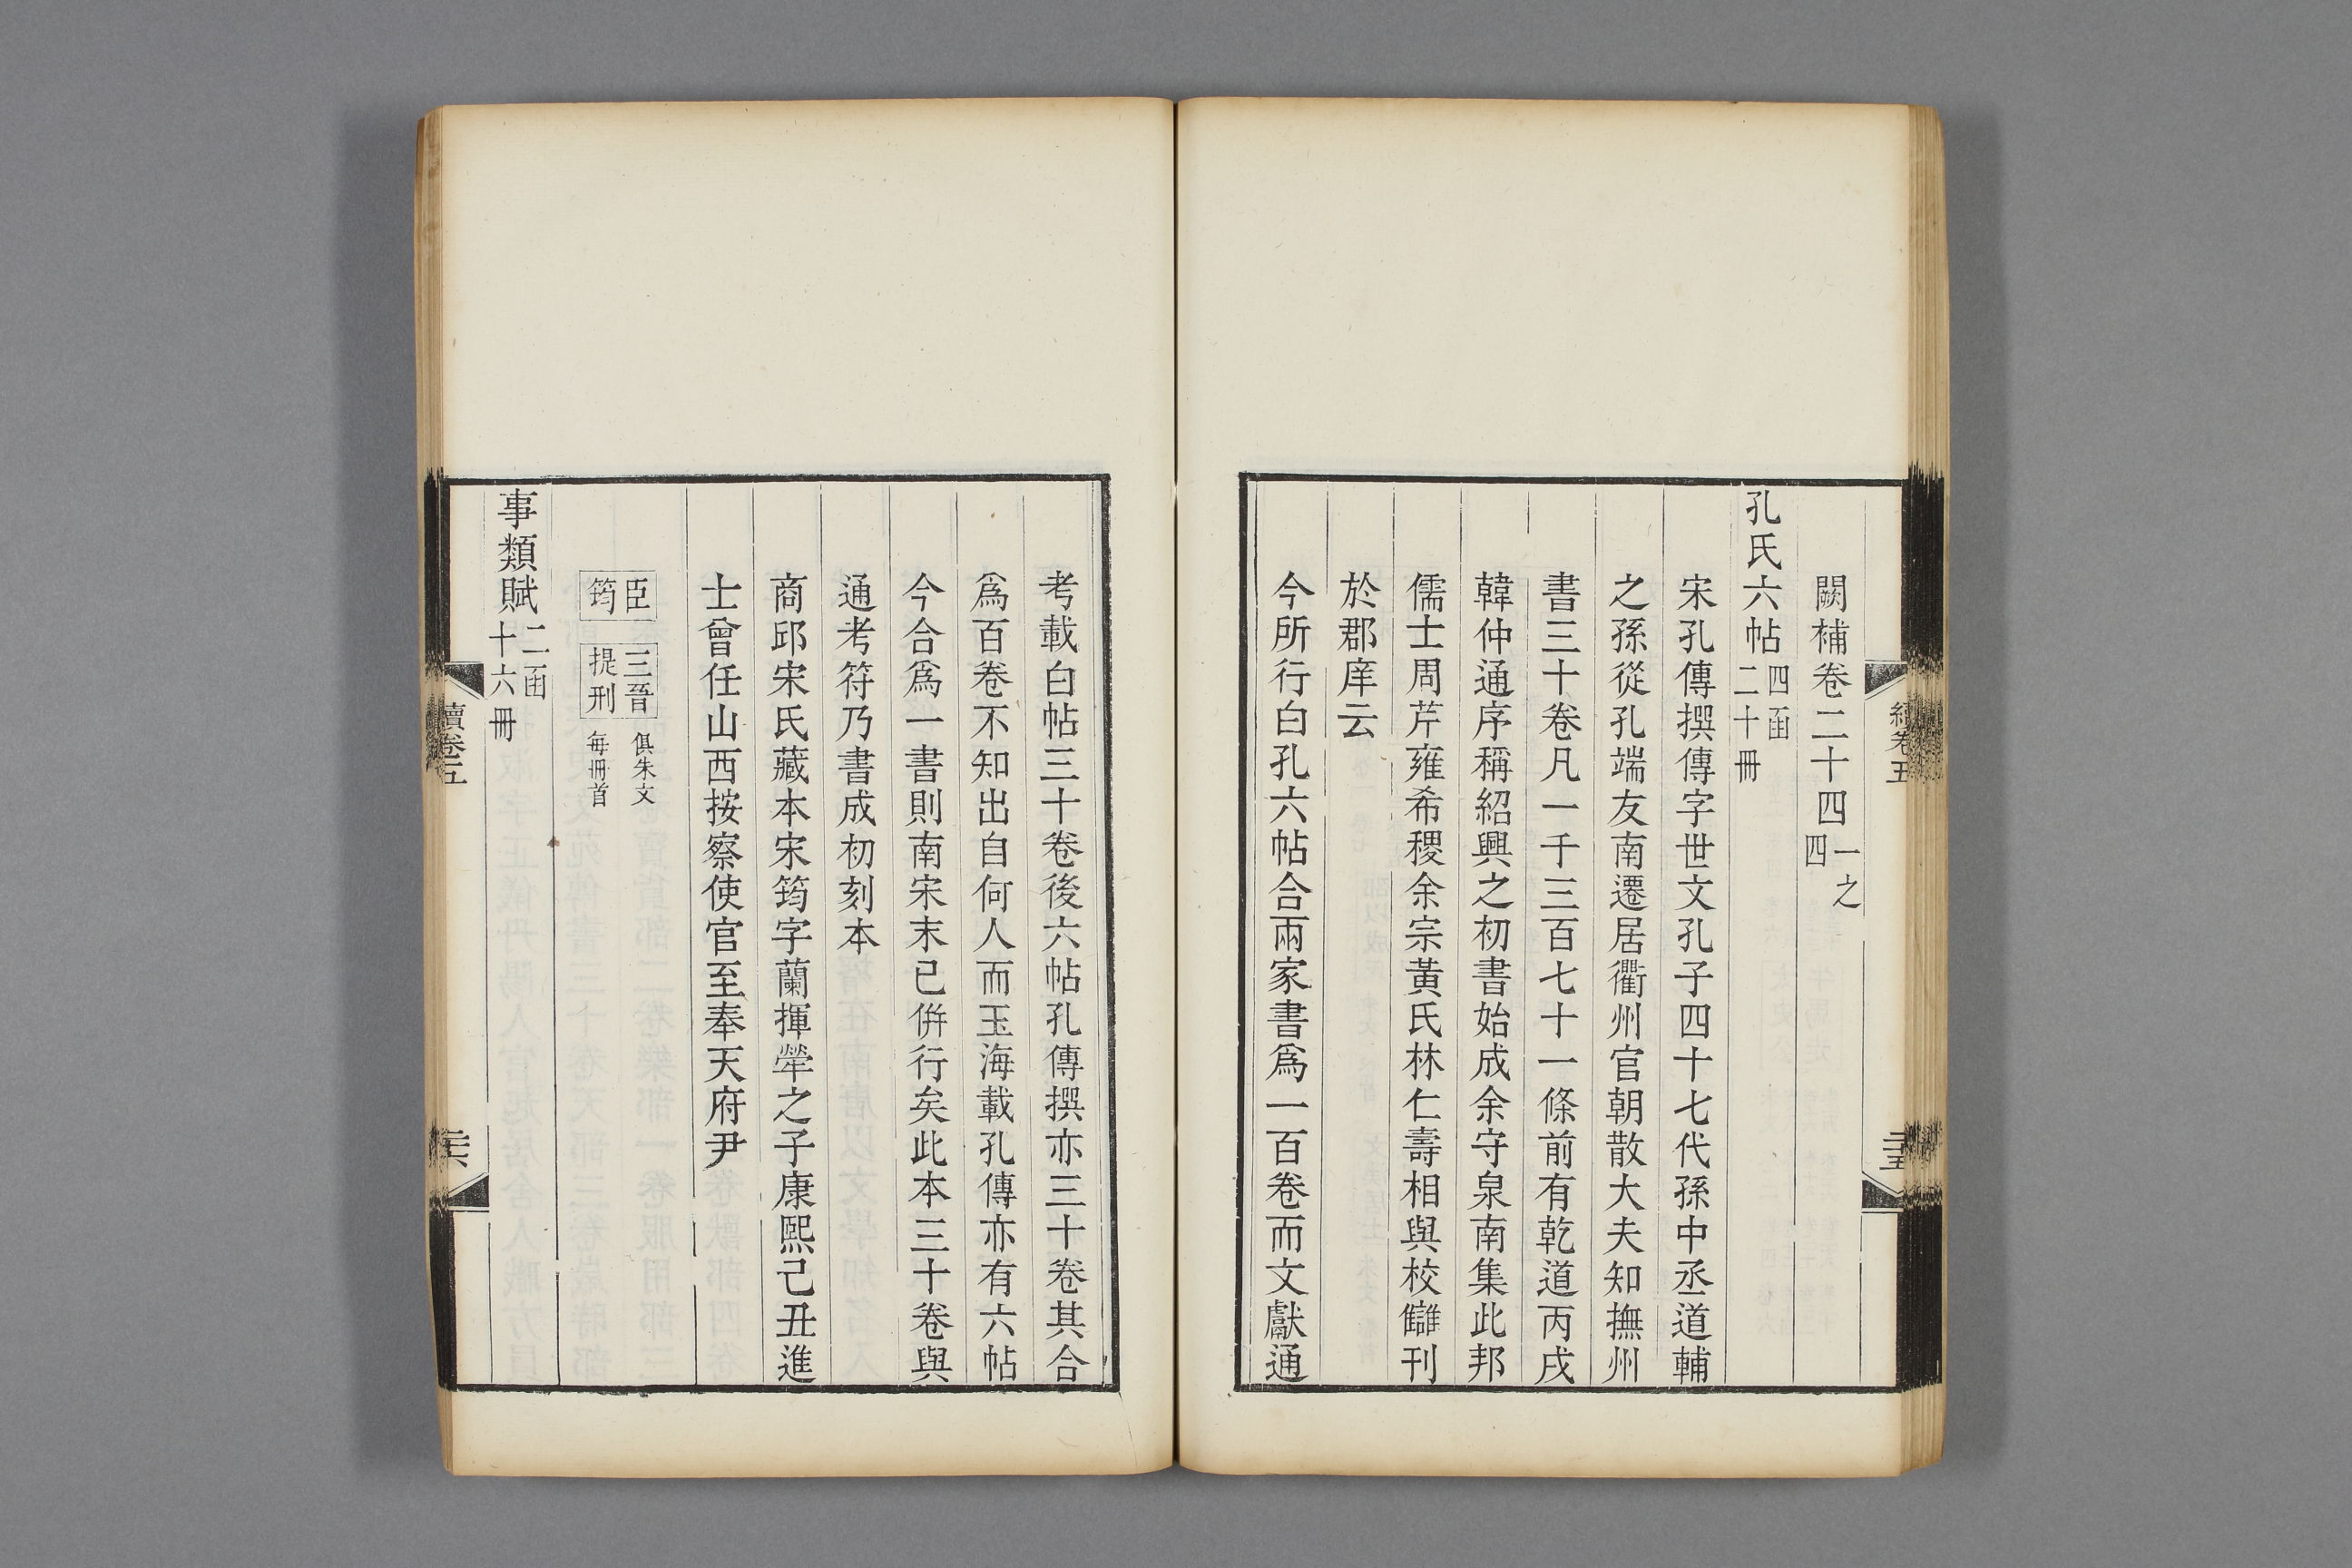 闕補卷二十四一之四
孔氏六帖四函二十冊
宋孔傳撰傳字世文孔子四十七代孫中丞道輔
之孫從孔端友南遷居衢州官朝散大夫知撫州
書三十卷凡一千三百七十一條前有乾道丙戌
韓仲通序稱紹興之初書始成余守泉南集此邦
儒士周芹雍希稷余宗黃氏林仁壽相與校讎刊
於郡庠云
今所行白孔六帖合兩家書爲一百卷而文獻通
續卷五
三十五
考載白帖三十卷後六帖孔傳撰亦三十卷其合
爲百卷不知出自何人而玉海載孔傳亦有六帖
今合爲一書則南宋末已倂行矣此本三十卷與
通考符乃書成初刻本
商邱宋氏藏本宋筠字蘭揮犖之子康熙己丑進
士曾任山西按察使官至奉天府尹
臣筠
三晉提刑
俱朱文每冊首
事類賦二函十六冊
續卷五